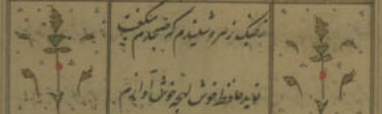 ز چنگ زهره شنیدم که صبحدم میگفت
غلام حافظ خوش لهجه خوش آوازم